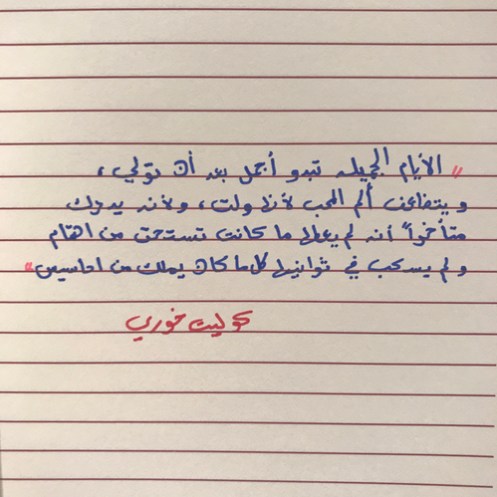 " الأيام الجميله تبدو أجمل بعد أن تولي ،
ويتضاعف ألم المحب لأنها ولت ، ولأنه يدرك
متأخراً أنه لم يعطها ما كانت تستحق من اهتمام
ولم يسكب في ثوانيها كل ما كان يملك من احاسيس "
كوليت خوري